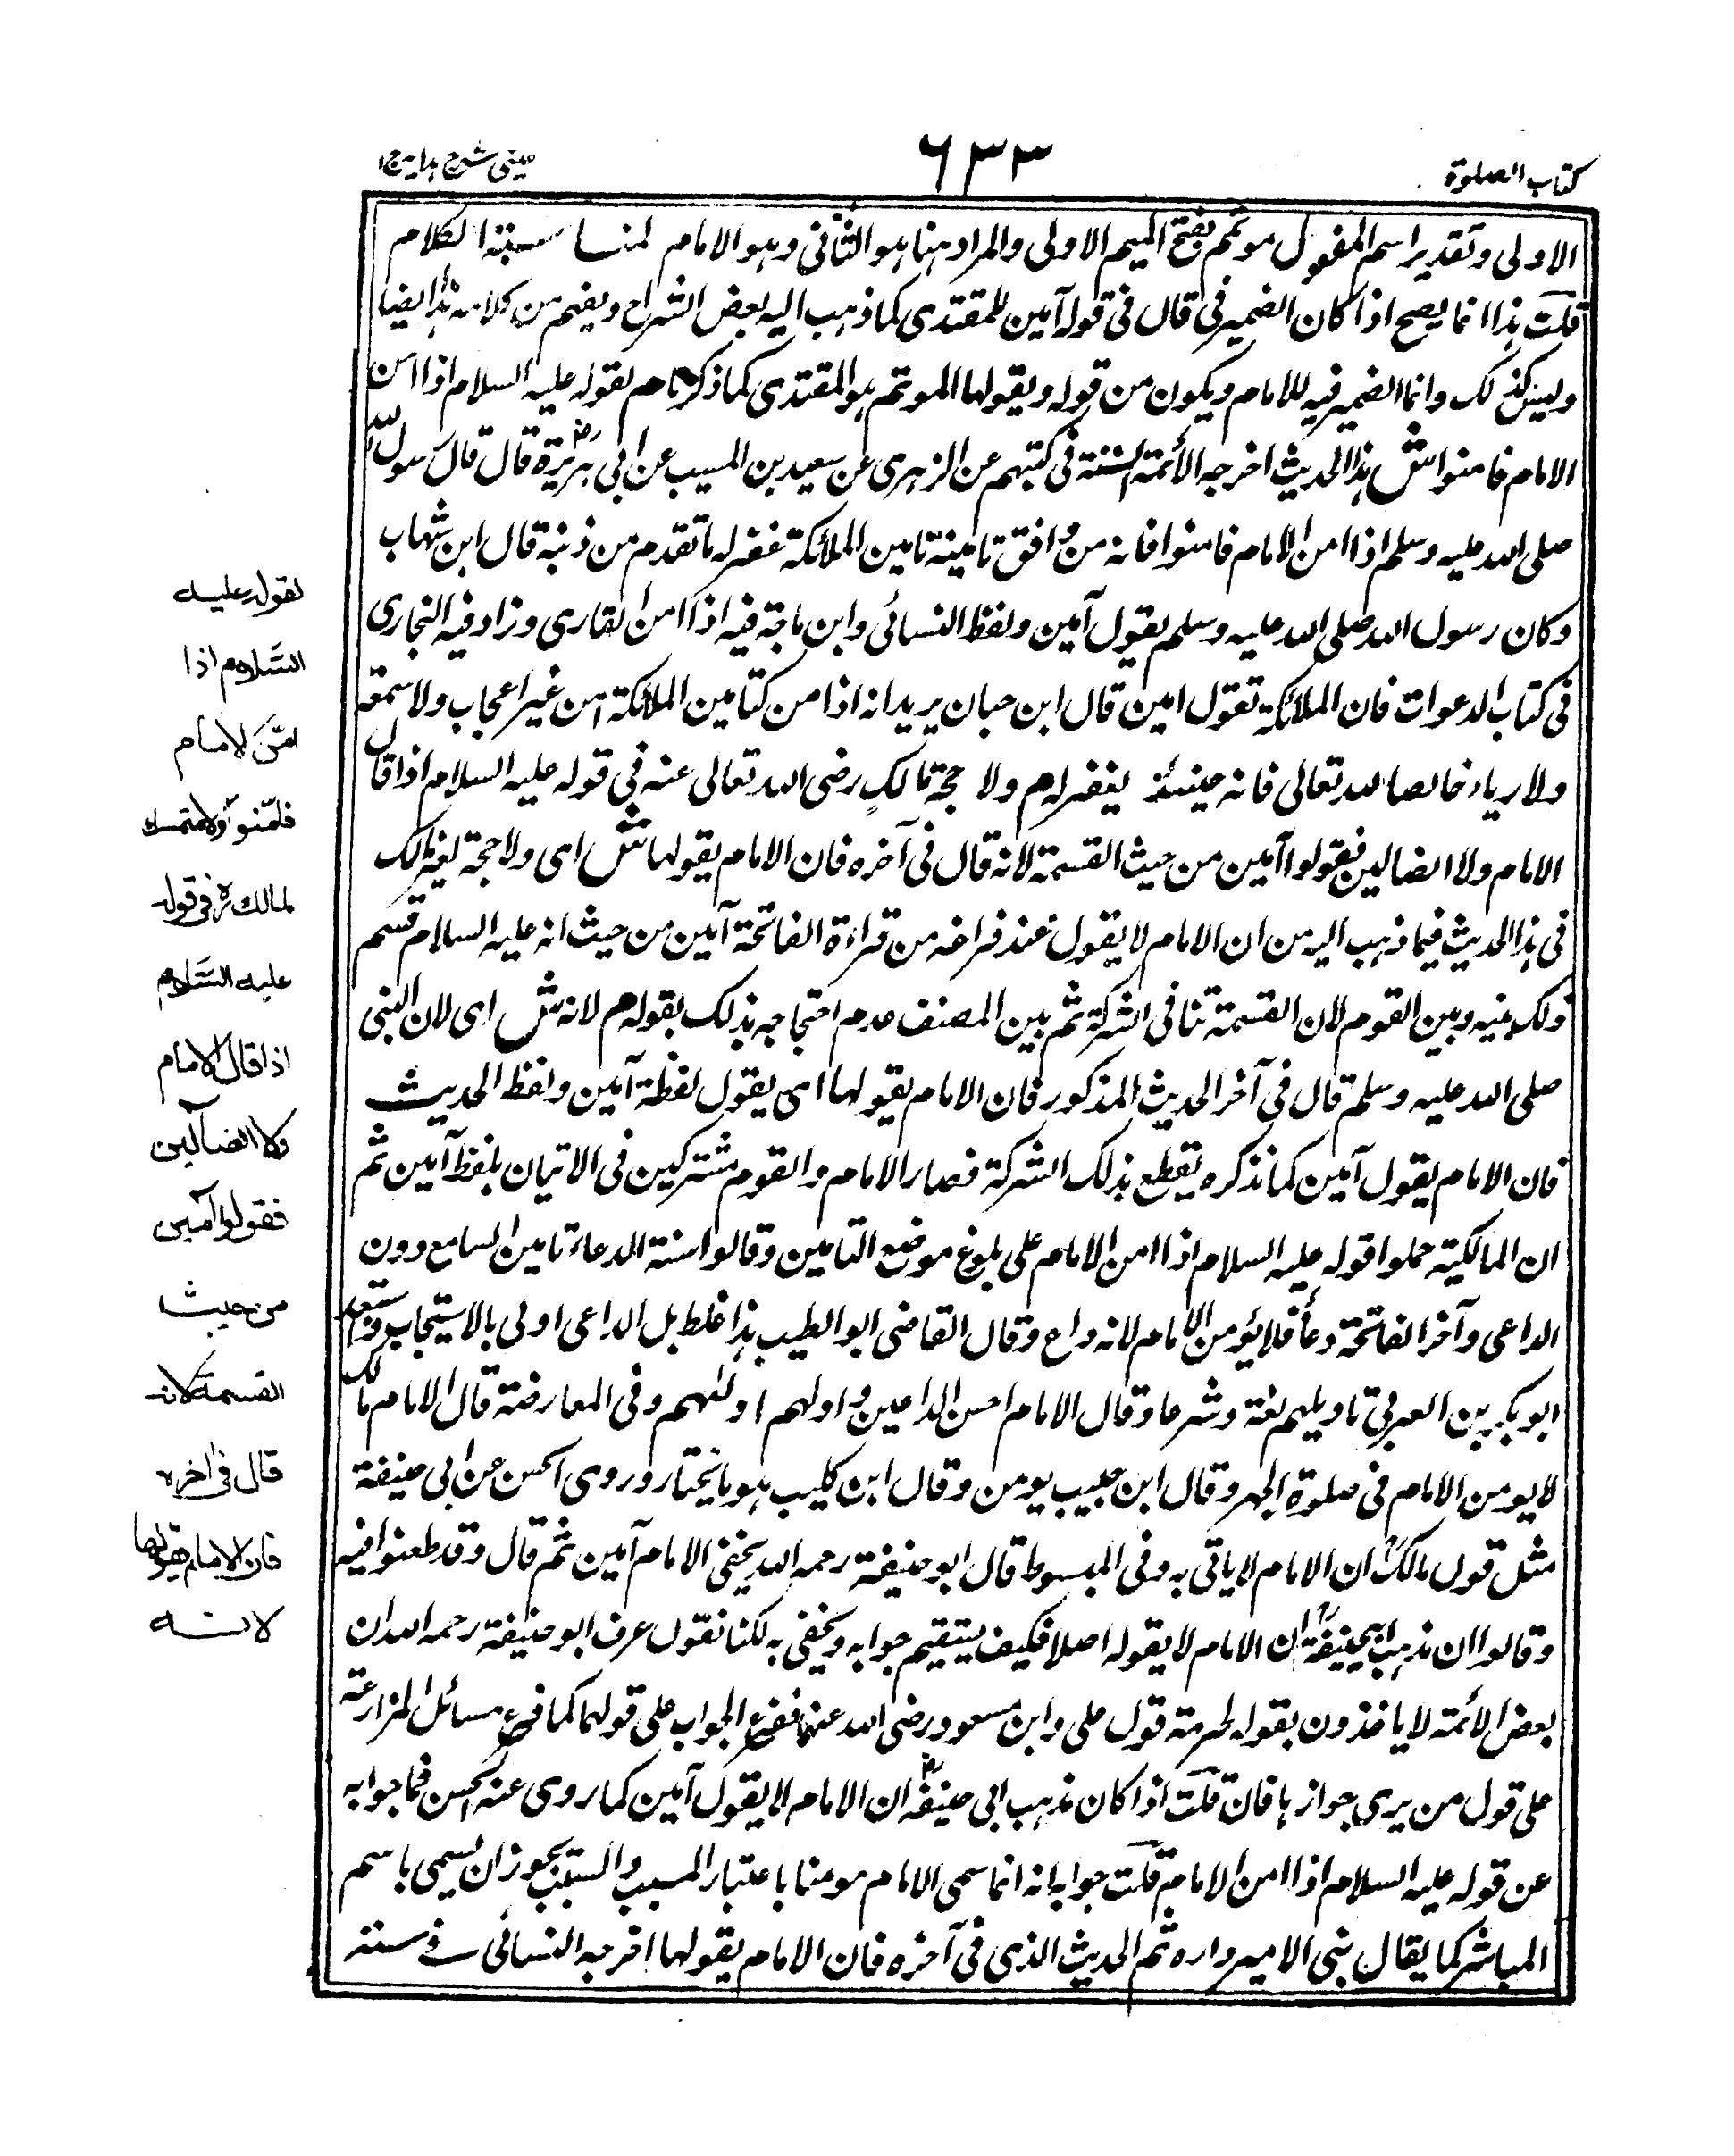 كتاب الصلوة
٦٣٣
عيني شرح هدايه ج١
الاولى وتقدير اسم المفعول موتمم بفتح الميم الاولى والمراد هنا هو الثانى وهو الامام لمناسبة الكلام
قلت هذا انما يصح اذا كان الضمير فى قال فى قوله آمين للمقتدى كما ذهب اليه بعض الشراح ويفهم من كلامه هذا ايضا
وليس كذلك وانما الضمير فيه للامام ويكون من قوله ويقولها الموتم هو المقتدى كما ذكرنا م لقوله عليه السلام اذا امن
الامام فامنوا ش هذا الحديث اخرجه الأئمة الستة فى كتبهم عن الزهرى عن سعيد بن المسيب عن ابى هريرة رض قال قال رسول الله
صلى الله عليه وسلم اذا امن الامام فامنوا فانه من وافق تامينه تامين الملائكة غفر له ما تقدم من ذنبه قال ابن شهاب
وكان رسول الله صلى الله عليه وسلم يقول آمين ولفظ النسائى وابن ماجة فيه اذا امن القارى وزاد فيه البخارى
فى كتاب الدعوات فان الملائكة تقول امين قال ابن حبان يريد انه اذا امن كتامين الملائكة من غير اعجاب ولا سمعة
ولا رياء خالصا لله تعالى فانه حينئذ يغفر له م ولا حجة لمالك رضى الله تعالى عنه فى قوله عليه السلام اذا قال
الامام ولا الضالين فقولوا آمين من حيث القسمة لانه قال فى آخره فان الامام يقولها ش اى ولا حجة لمالك
فى هذا الحديث فيما ذهب اليه من ان الامام لا يقول عند فراغه من قراءة الفاتحة آمين من حيث انه عليه السلام قسم
ذلك بينه وبين القوم لان القسمة تنافى الشركة ثم بين المصنف عدم احتجاجه بذلك بقوله م لانه ش اى لان النبى
صلى الله عليه وسلم قال فى آخر الحديث المذكور فان الامام يقولها اى يقول لفظة آمين ولفظ الحديث
فان الامام يقول آمين كما نذكره يقطع بذلك الشركة فصار الامام والقوم مشتركين فى الاتيان بلفظ آمين ثم
ان المالكية حملوا قوله عليه السلام اذا امن الامام على بلوغ موضع التامين وقالوا سنة الدعاء تامين السامع دون
الداعى وآخر الفاتحة دعاً فلا يؤمن الامام لانه داع وقال القاضى ابو الطيب هذا غلط بل الداعى اولى بالاستيجاب واستبعد
ابو بكر بن العربى تاويلهم لغة وشرعا وقال الامام احسن الداعين واولهم اولهم وفى المعارضة قال الامام مالك
لا يومن الامام فى صلوة الجهر وقال ابن حبيب يومن وقال ابن كليب هو ما يختار وروى الحسن عن ابى حنيفة
مثل قول مالك ان الامام لا ياتى به وفى المبسوط قال ابو حنيفة رحمه الله يخفى الامام آمين ثم قال وقد طعنوا فيه
وقالوا ان مذهب ابيحنيفة ان الامام لا يقوله اصلا فكيف يستقيم جوابه ويخفى به لكنا نقول عرف ابو حنيفة رحمه الله ان
بعض الائمة لا ياخذون بقوله لحرمة قول على وابن مسعود رضى الله عنهما ففرع الجواب على قولهما كما فرع مسائل المزارعة
على قول من يرى جوازها فان قلت اذا كان مذهب ابى حنيفة ان الامام لا يقول آمين كما روى عنه الحسن فما جوابه
عن قوله عليه السلام اذا امن الامام قلت جوابه انه انما سمى الامام مومنا باعتبار المسبب والمسبب يجوز ان يسمى باسم
المباشر كما يقال بنى الامير داره ثم الحديث الذى فى آخره فان الامام يقولها اخرجه النسائى فى سننه
لقوله عليه
السَّلام اذا
امّن الامام
فامّنوا ولا متمسك
لمالك رح فى قوله
عليه السَّلام
اذا قال الامام
ولا الضالين
فقولوا آمين
من حيث
القسمة لانه
قال فى اخره
فان الامام يقولها
لانه